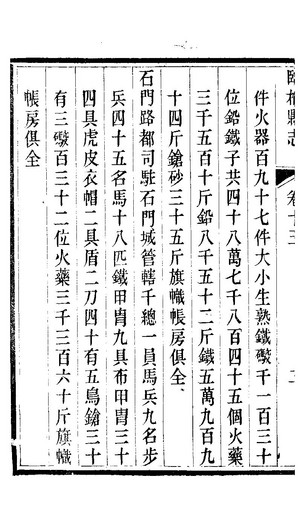 臨榆縣志
卷十三
件火器百九十七件大小生熟鐵礮千一百三十
位鉛鐵子共四十八萬七千八百四十五個火藥
三千五百十斤鉛八千五十二斤鐵五萬九百九
十四斤鎗砂三十五斤旗幟帳房俱全
石門路都司駐石門城管轄千總一員馬兵九名步
兵四十五名馬十八匹鐵甲冑九具布甲冑三十
四具虎皮衣帽二具盾二刀四十有五鳥鎗三十
有三礮百三十二位火藥三千三百六十斤旗幟
帳房俱全